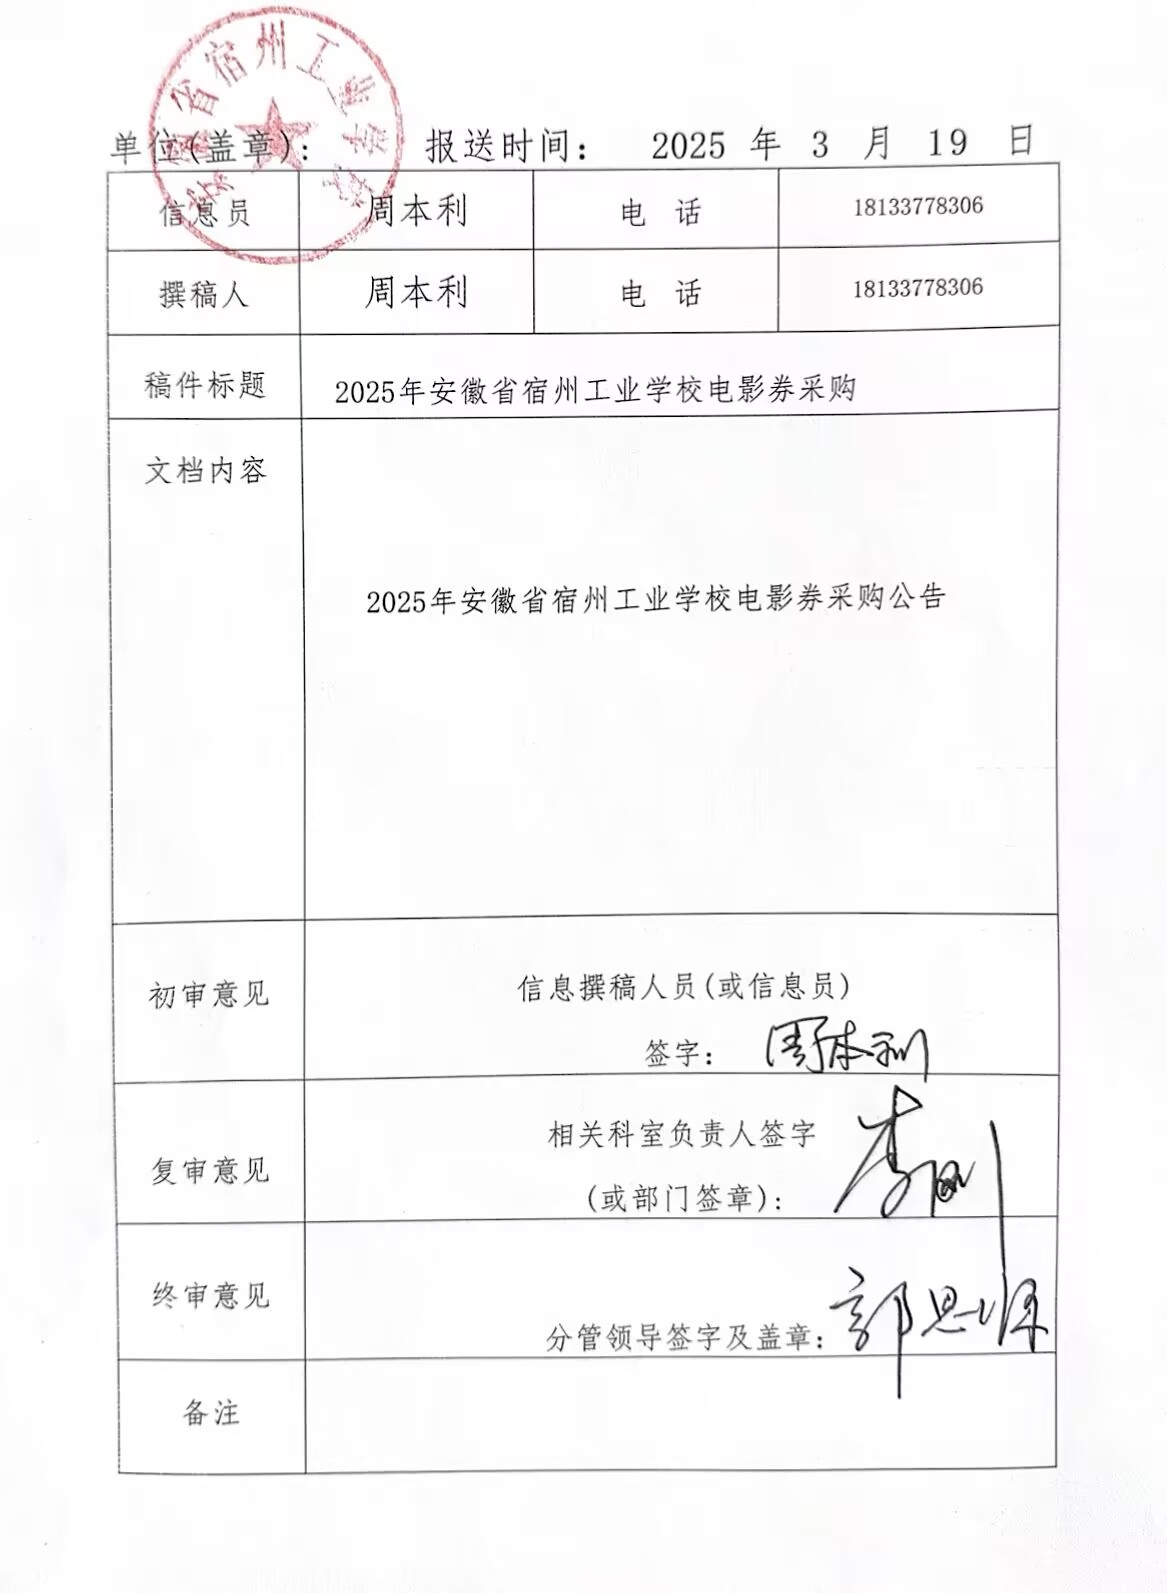 省宿州工业学
单位(盖章): 报送时间: 2025 年 3 月 19 日
信息员 周本利 电 话 18133778306
撰稿人 周本利 电 话 18133778306
稿件标题 2025年安徽省宿州工业学校电影券采购
文档内容
2025年安徽省宿州工业学校电影券采购公告
初审意见 信息撰稿人员(或信息员)
签字: 周本利
相关科室负责人签字
复审意见
(或部门签章): 李
终审意见
分管领导签字及盖章: 郭思
备注